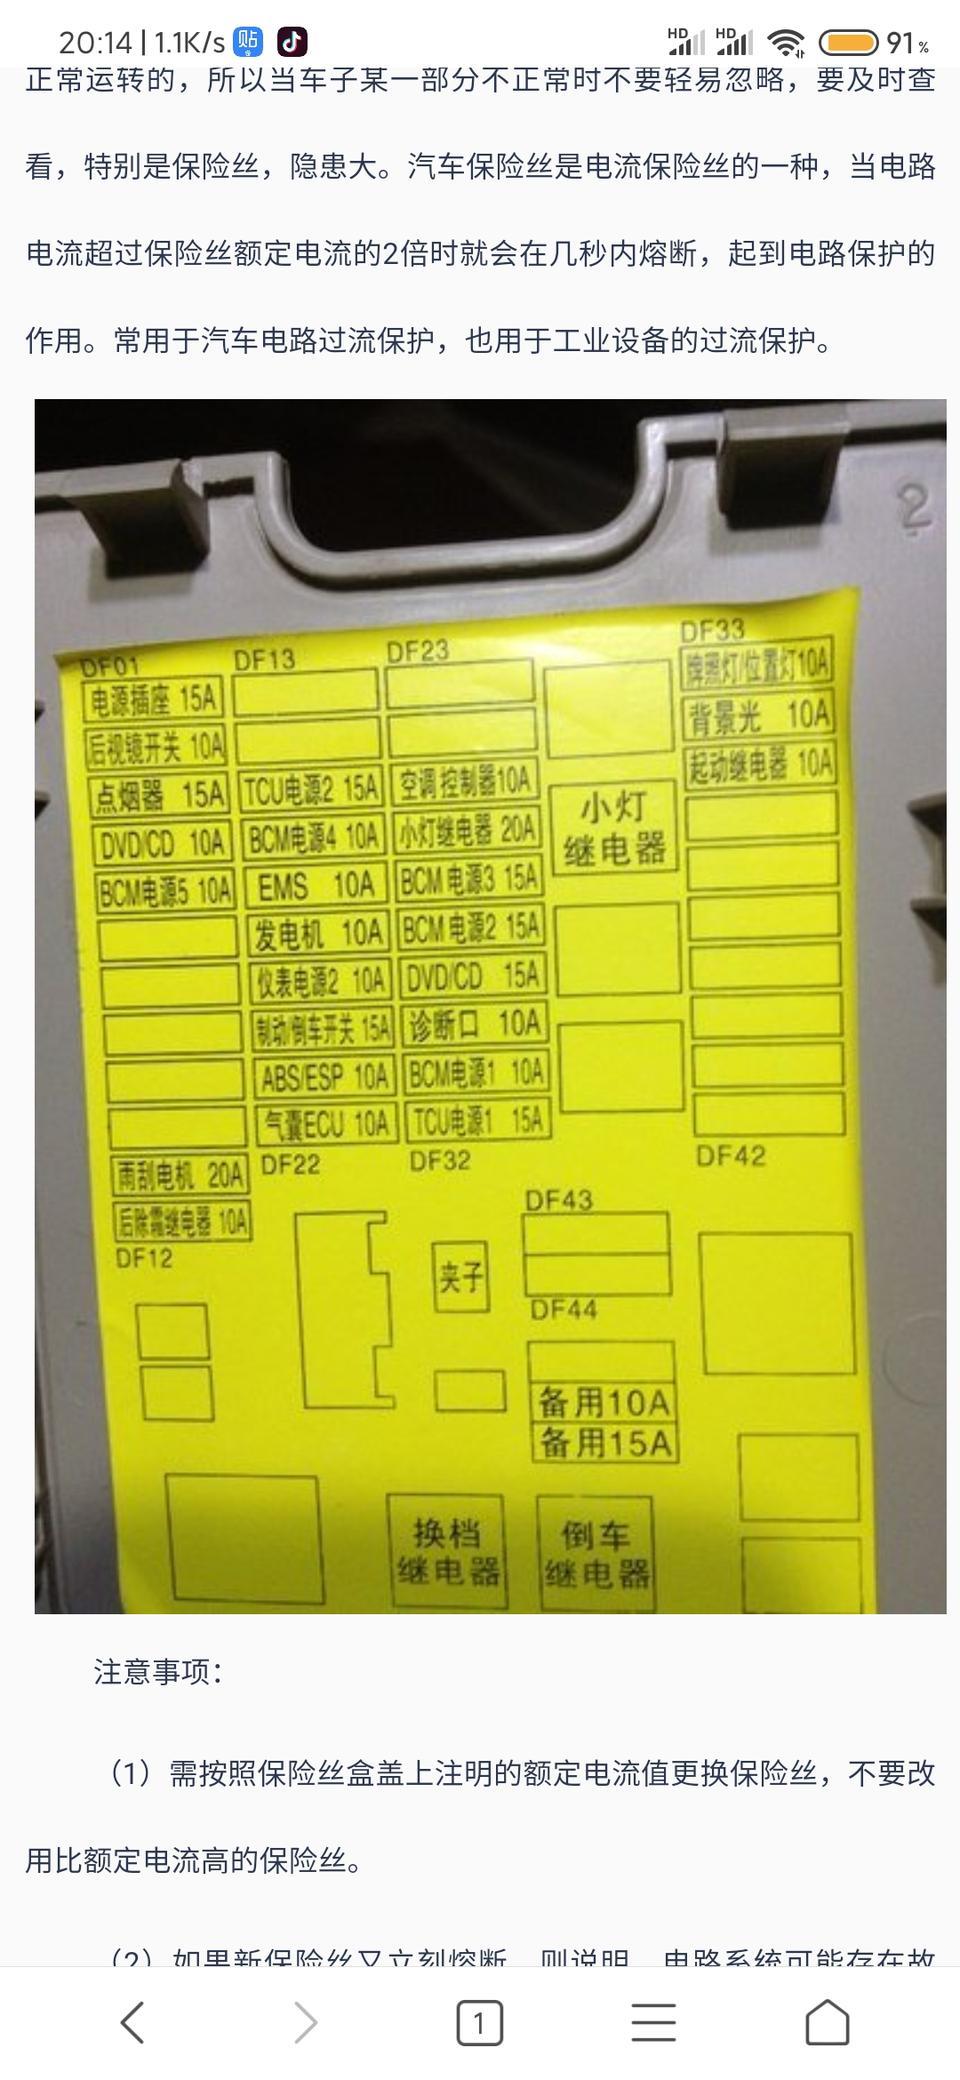 20:14 | 1.1K/s 贴 HD HD 91%
正常运转的，所以当车子某一部分不正常时不要轻易忽略，要及时查
看，特别是保险丝，隐患大。汽车保险丝是电流保险丝的一种，当电路
电流超过保险丝额定电流的2倍时就会在几秒内熔断，起到电路保护的
作用。常用于汽车电路过流保护，也用于工业设备的过流保护。
2
DF01
电源插座 15A
后视镜开关 10A
点烟器 15A
DVD/CD 10A
BCM电源5 10A
雨刮电机 20A
后除霜继电器 10A
DF12
DF13
TCU电源2 15A
BCM电源4 10A
EMS 10A
发电机 10A
仪表电源2 10A
制动/倒车开关 15A
ABS/ESP 10A
气囊ECU 10A
DF22
DF23
空调控制器10A
小灯继电器 20A
BCM电源3 15A
BCM电源2 15A
DVD/CD 15A
诊断口 10A
BCM电源1 10A
TCU电源1 15A
DF32
小灯
继电器
DF33
牌照灯/位置灯10A
背景光 10A
起动继电器 10A
DF42
DF43
DF44
夹子
备用10A
备用15A
换档
继电器
倒车
继电器
注意事项：
（1）需按照保险丝盒盖上注明的额定电流值更换保险丝，不要改
用比额定电流高的保险丝。
（2）如果新保险丝又立刻熔断，则说明，电路系统可能存在故
1